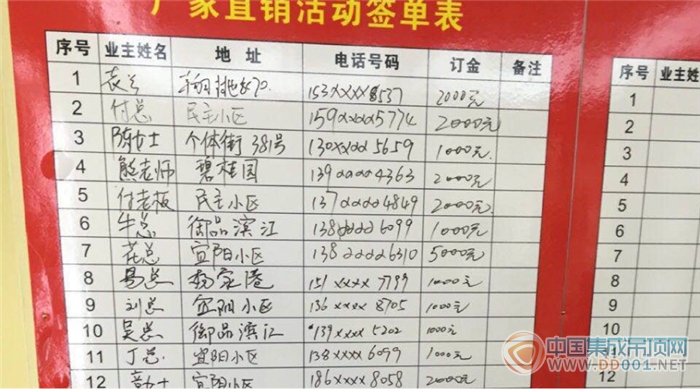 厂家直销活动签单表
序号 业主姓名 地 址 电话号码 订金 备注
1 袁总 153xxxx8537 2000元
2 付总 民主小区 159xxxx5774 2000元
3 陈女士 个体街381号 130xxxx5659 1000元
4 熊老师 碧桂园 139xxxx4363 2000元
5 付老板 民主小区 137xxxx4849 2000元
6 牛总 御品滨江 138xxxx6099 1000元
7 花总 宜阳小区 138xxxx6310 5000元
8 易总 杨家港 151xxxx7799 1000元
9 刘总 宜阳小区 136xxxx8705 1000元
10 吴总 御品滨江 139xxxx5202 1000元
11 丁总 宜阳小区 138xxxx6099 1000元
12 女士 宜阳小区 186xxxx8058 2000元
序号 业主姓名
1
2
3
4
5
6
7
8
9
10
11
12
中国集成吊顶网
WWW.DD001.NET